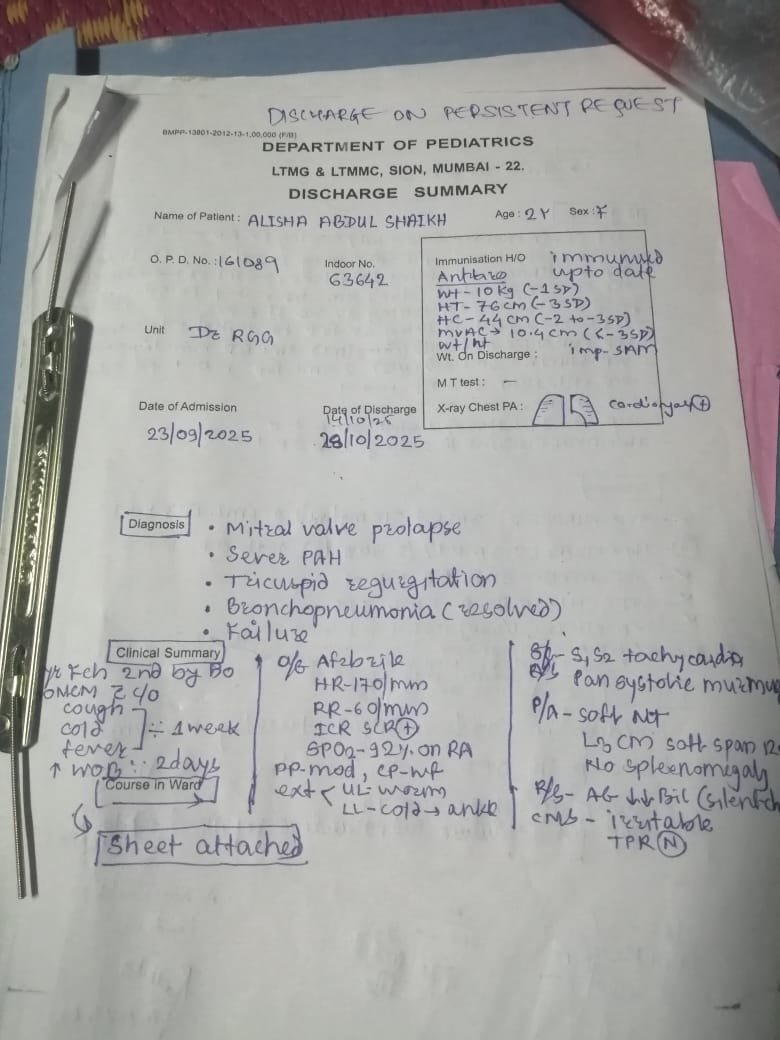 DISCHARGE ON PERSISTENT REQUEST
BMPP-13801-2012-13-1,00,000 (F/B)
DEPARTMENT OF PEDIATRICS
LTMG & LTMMC, SION, MUMBAI - 22.
DISCHARGE SUMMARY
Name of Patient : ALISHA ABDUL SHAIKH Age : 2Y Sex : F
O. P. D. No. : 161089
Indoor No.
63642
Unit Dr RGG
Immunisation H/O immunised
upto date
Wt - 10 kg (-1SD)
HT - 76 cm (-3SD)
HC - 44 cm (-2 to -3SD)
MUAC → 10.4 cm (<-3SD)
Wt/ht
Wt. On Discharge : imp - SAM
M T test : -
X-ray Chest PA :
Date of Admission
23/09/2025
Date of Discharge
14/10/25
28/10/2025
Diagnosis
• Mitral valve prolapse
• Sever PAH
• Tricuspid regurgitation
• Bronchopneumonia (resolved)
• Failure
Clinical Summary
yr Fch 2nd by Bo
c/o
cough
cold
fever
1 week
↑ WOB 2days
Course in Ward
Sheet attached
O/G Afebrile
HR - 170/min
RR - 60/min
ICR SCR +
SPO2 - 92% on RA
PP - mod, CP - wf
ext < UL - warm
LL - cold → ankle
S1, S2 tachycardia
Pan systolic murmur
P/A - soft NT
L3 cm soft span
No spleenomegaly
R/S - AE ↓↓ Bil (silent ch
CNS - irritable
TPR N